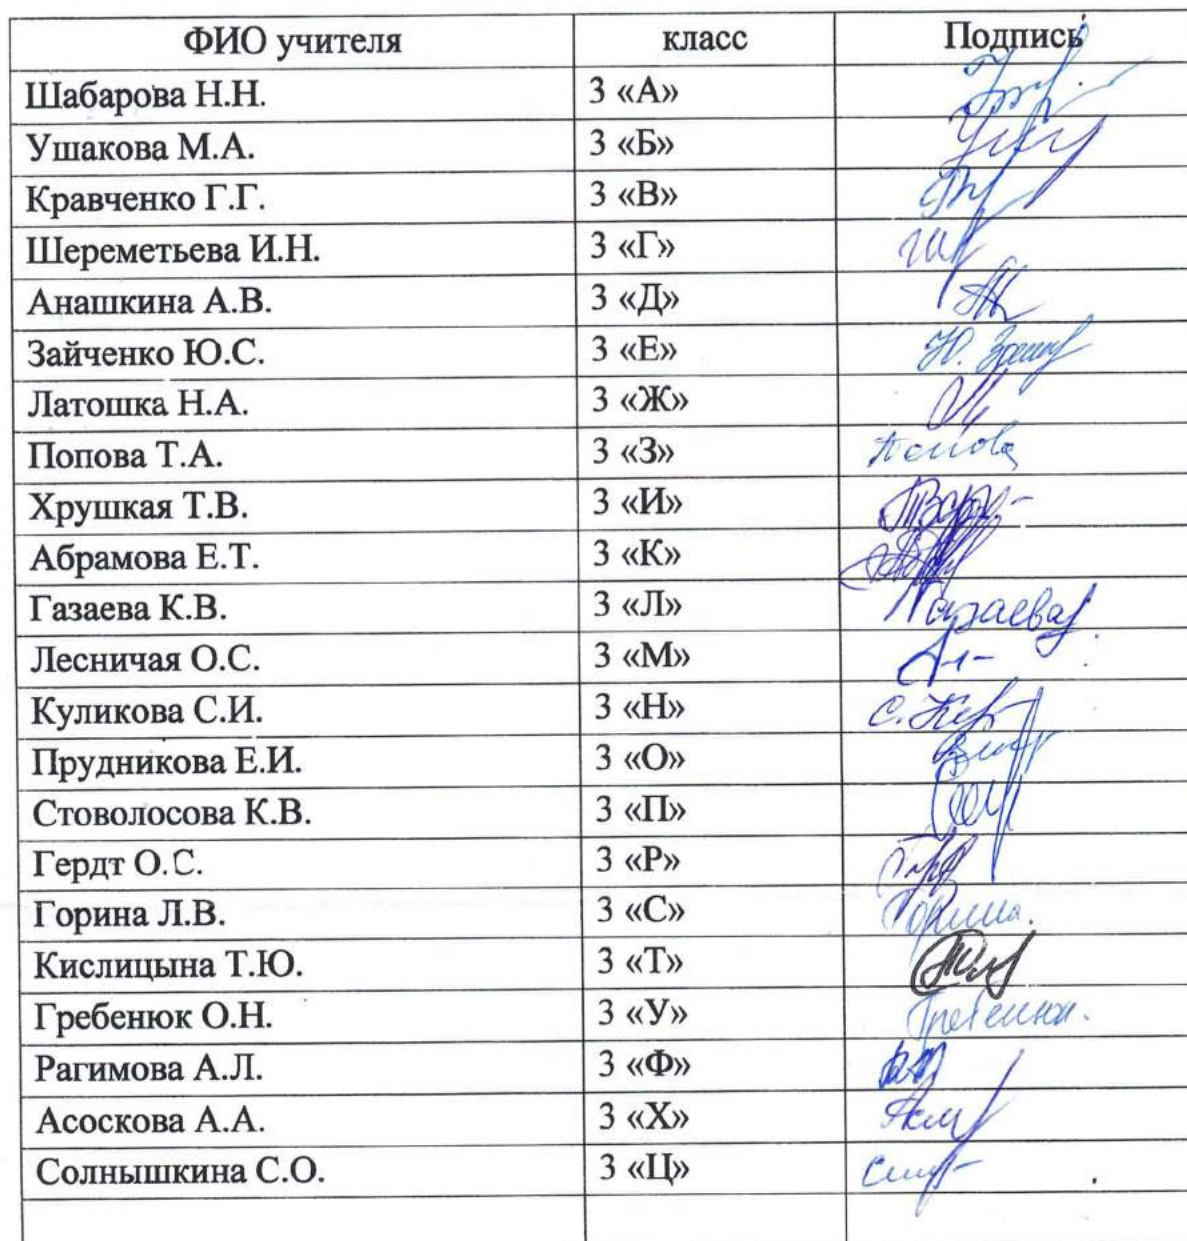 ФИО учителя класс Подпись
Шабарова Н.Н. 3 «А»
Ушакова М.А. 3 «Б»
Кравченко Г.Г. 3 «В»
Шереметьева И.Н. 3 «Г»
Анашкина А.В. 3 «Д»
Зайченко Ю.С. 3 «Е»
Латошка Н.А. 3 «Ж»
Попова Т.А. 3 «З» Попова
Хрушкая Т.В. 3 «И»
Абрамова Е.Т. 3 «К»
Газаева К.В. 3 «Л» Газаева
Лесничая О.С. 3 «М»
Куликова С.И. 3 «Н»
Прудникова Е.И. 3 «О»
Стоволосова К.В. 3 «П»
Гердт О.С. 3 «Р»
Горина Л.В. 3 «С» Горина.
Кислицына Т.Ю. 3 «Т»
Гребенюк О.Н. 3 «У» Гребенюк.
Рагимова А.Л. 3 «Ф»
Асоскова А.А. 3 «Х»
Солнышкина С.О. 3 «Ц»